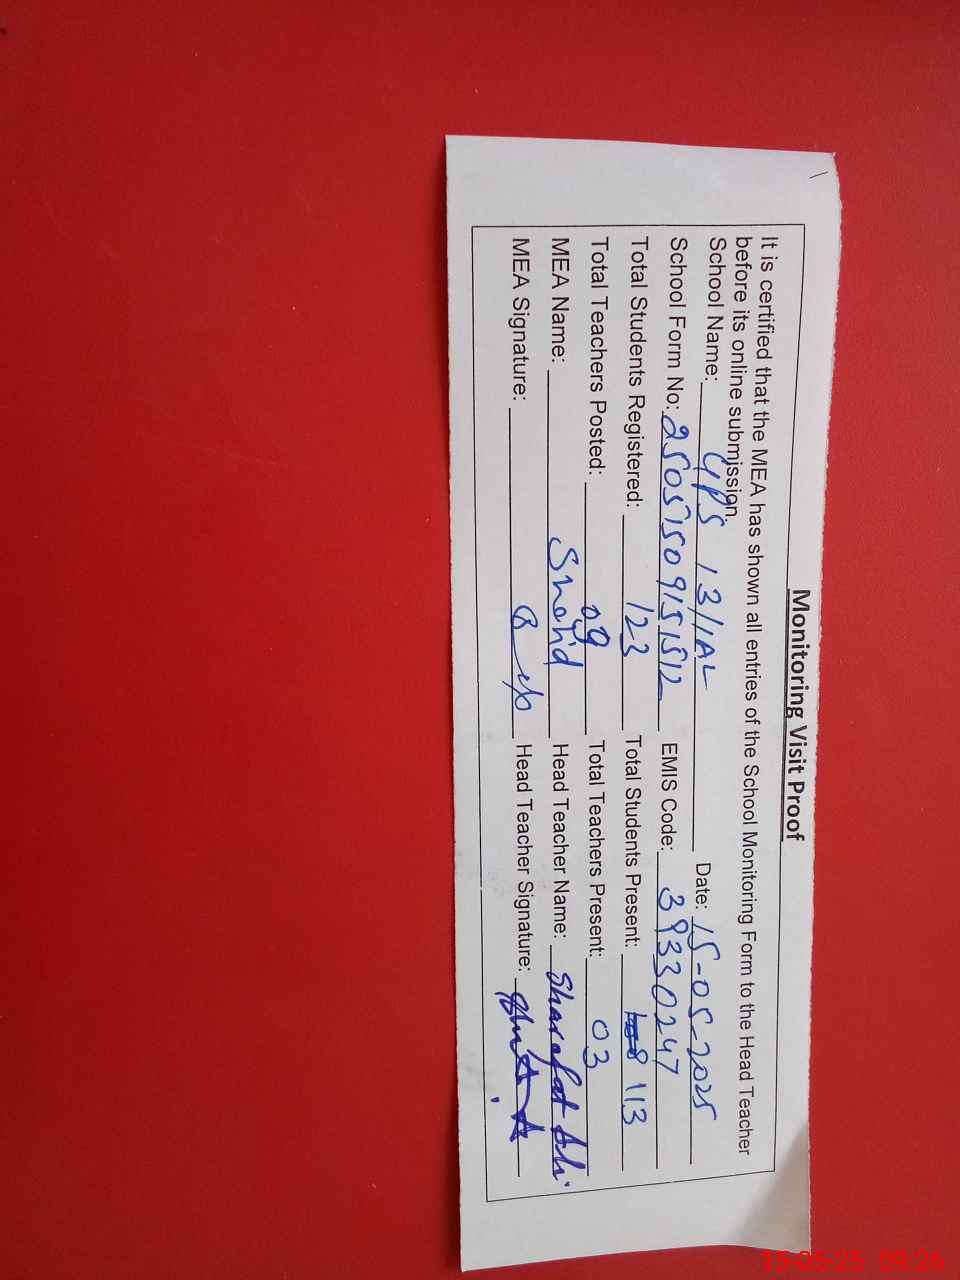 Monitoring Visit Proof
It is certified that the MEA has shown all entries of the School Monitoring Form to the Head Teacher
before its online submission.
School Name: GPS 13/1AL Date: 15-05-2025
School Form No: 250515091512 EMIS Code: 39330247
Total Students Registered: 123 Total Students Present: 113
Total Teachers Posted: Total Teachers Present: 03
MEA Name: Shahid Head Teacher Name: Sharafat Ali
MEA Signature: Head Teacher Signature:
15-05-25 09:26